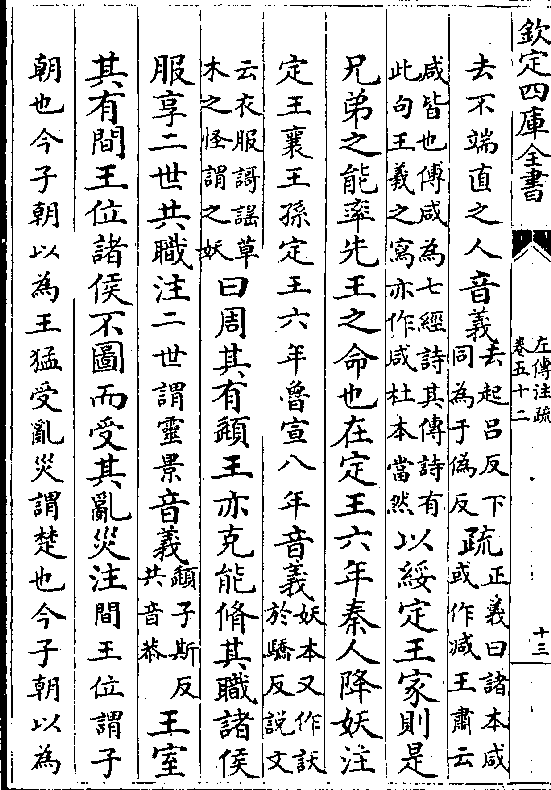 欽定四庫全書
左傳注疏
卷五十二
十三
去不端直之人音義去起呂反下同為于偽反疏正義曰諸本咸或作減王肅云
咸皆也傅咸為七經詩其傳詩有此句王羲之寫亦作咸杜本當然以綏定王家則是
兄弟之能率先王之命也在定王六年秦人降妖注
定王襄王孫定王六年魯宣八年音義妖本又作訞於驕反説文
云衣服謌謡草木之怪謂之妖曰周其有頿王亦克能脩其職諸侯
服享二世共職注二世謂靈景音義頿子斯反共音恭王室
其有間王位諸侯不圖而受其亂災注間王位謂子
朝也今子朝以為王猛受亂災謂楚也今子朝以為